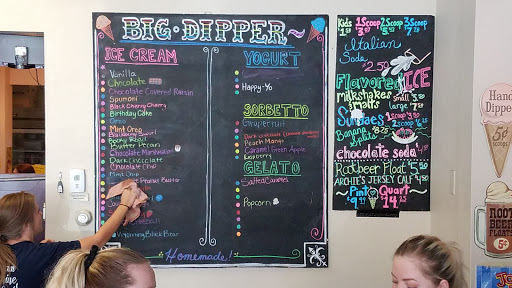 BIG·DIPPER~
ICE CREAM
Vanilla
Chocolate
Chocolate Covered Raisin
Spumoni
Black Cherry Cherry
Birthday Cake
Oreo
Mint Oreo
Rocky Road
Butter Pecan
Chocolate Marshmallow
Dark Chocolate
Chocolate Chip
Mint Chip
Peanut Butter
Wyoming Black Bear
Homemade!
YOGURT
Happy-Yo
SORBETTO
Grapefruit
Peach Mango
Caramel Green Apple
Raspberry
GELATO
Salted Caramel
Popcorn
Kids 1 Scoop 2 Scoop 3 Scoop
Italian
Soda
2.50
Flavored ICE
Milkshakes
& Malts
Small
Large
Sundaes
1 Scoop
2 Scoop
Banana
Splits
chocolate soda
Rootbeer Float 5.50
ARCHIE'S JERSEY CALF
Pint Quart
9.95 14.25
Hand
Dipped
5¢
ROOT
BEER
5¢